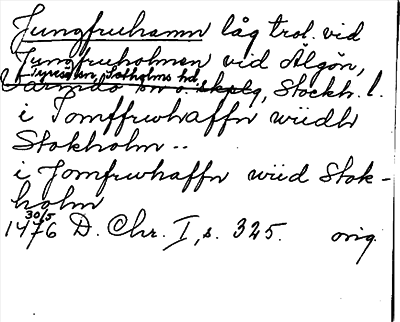 Jungfruhamn låg trol. vid
Jungfruholmen vid Älgön,
Tyresö sn, Sotholms hd,
Värmdö sn o. skplg, Stockh. l.
i Jomffrwhaffn wiidh
Stokholm ..
i Jomfrwhaffn wiid Stok-
holm
30/5
1476 D. Chr. I, s. 325. orig.